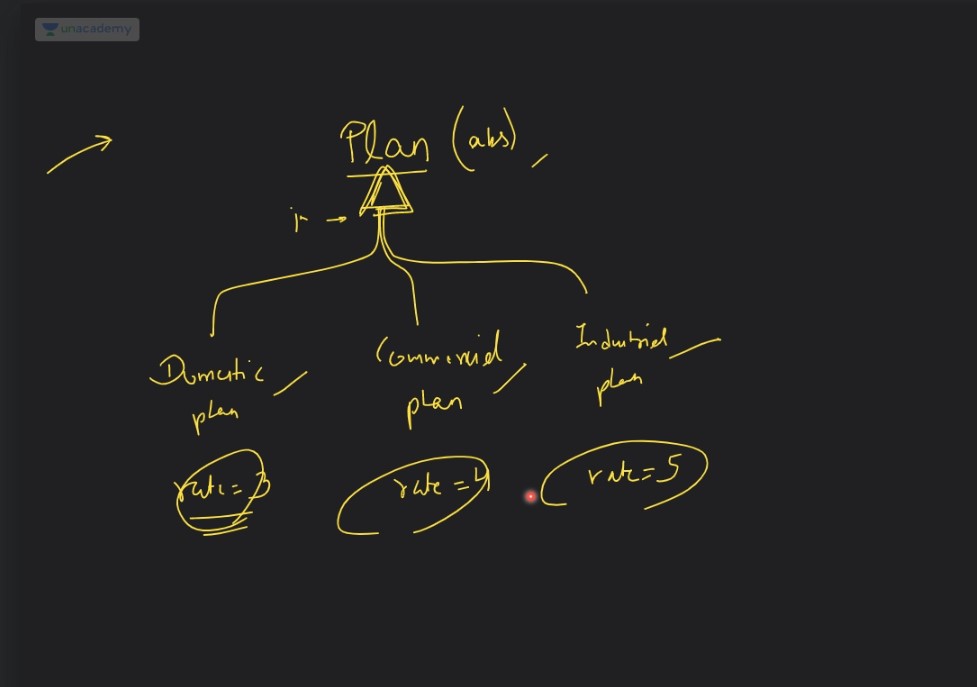 unacademy
Plan (abs)
Domestic
plan
Commercial
plan
Industrial
plan
rate = 3
rate = 4
rate = 5